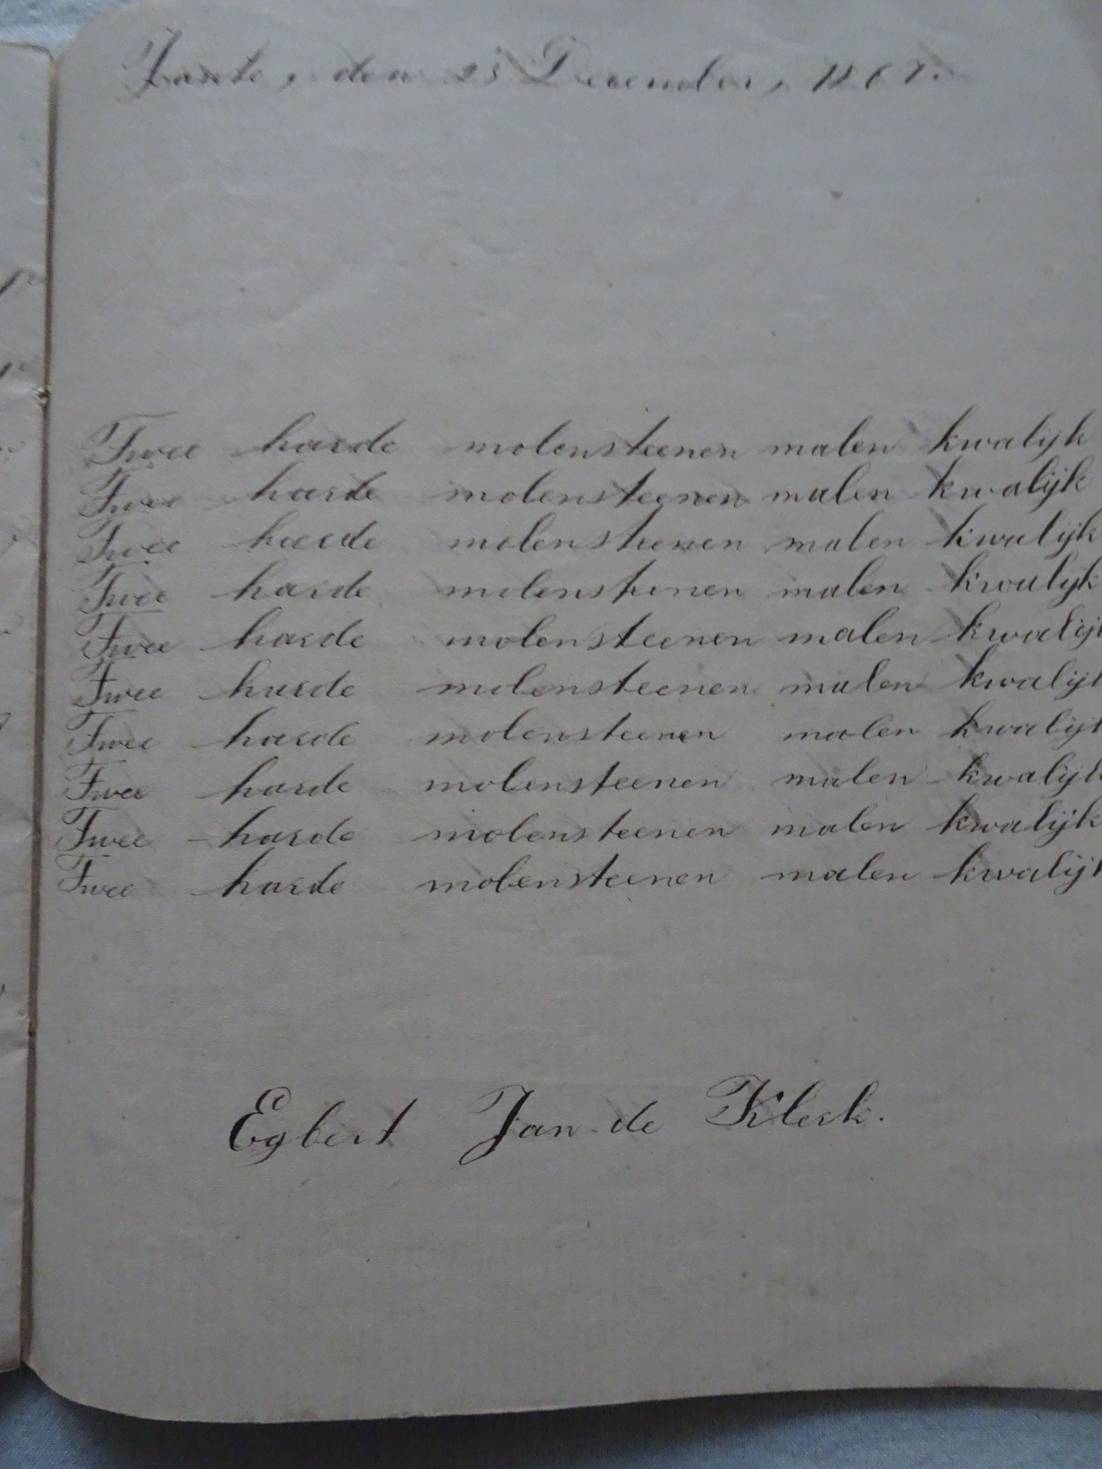 den 23 December, 1867.
Twee harde molensteenen malen kwalijk
Twee harde molensteenen malen kwalijk
Twee harde molensteenen malen kwalijk
Twee harde molenstenen malen kwalijk
Twee harde molensteenen malen kwalijk
Twee harde molensteenen malen kwalijk
Twee harde molensteenen malen kwalijk
Twee harde molensteenen malen kwalijk
Twee harde molensteenen malen kwalijk
Twee harde molensteenen malen kwalijk
Egbert Jan de Klerk.